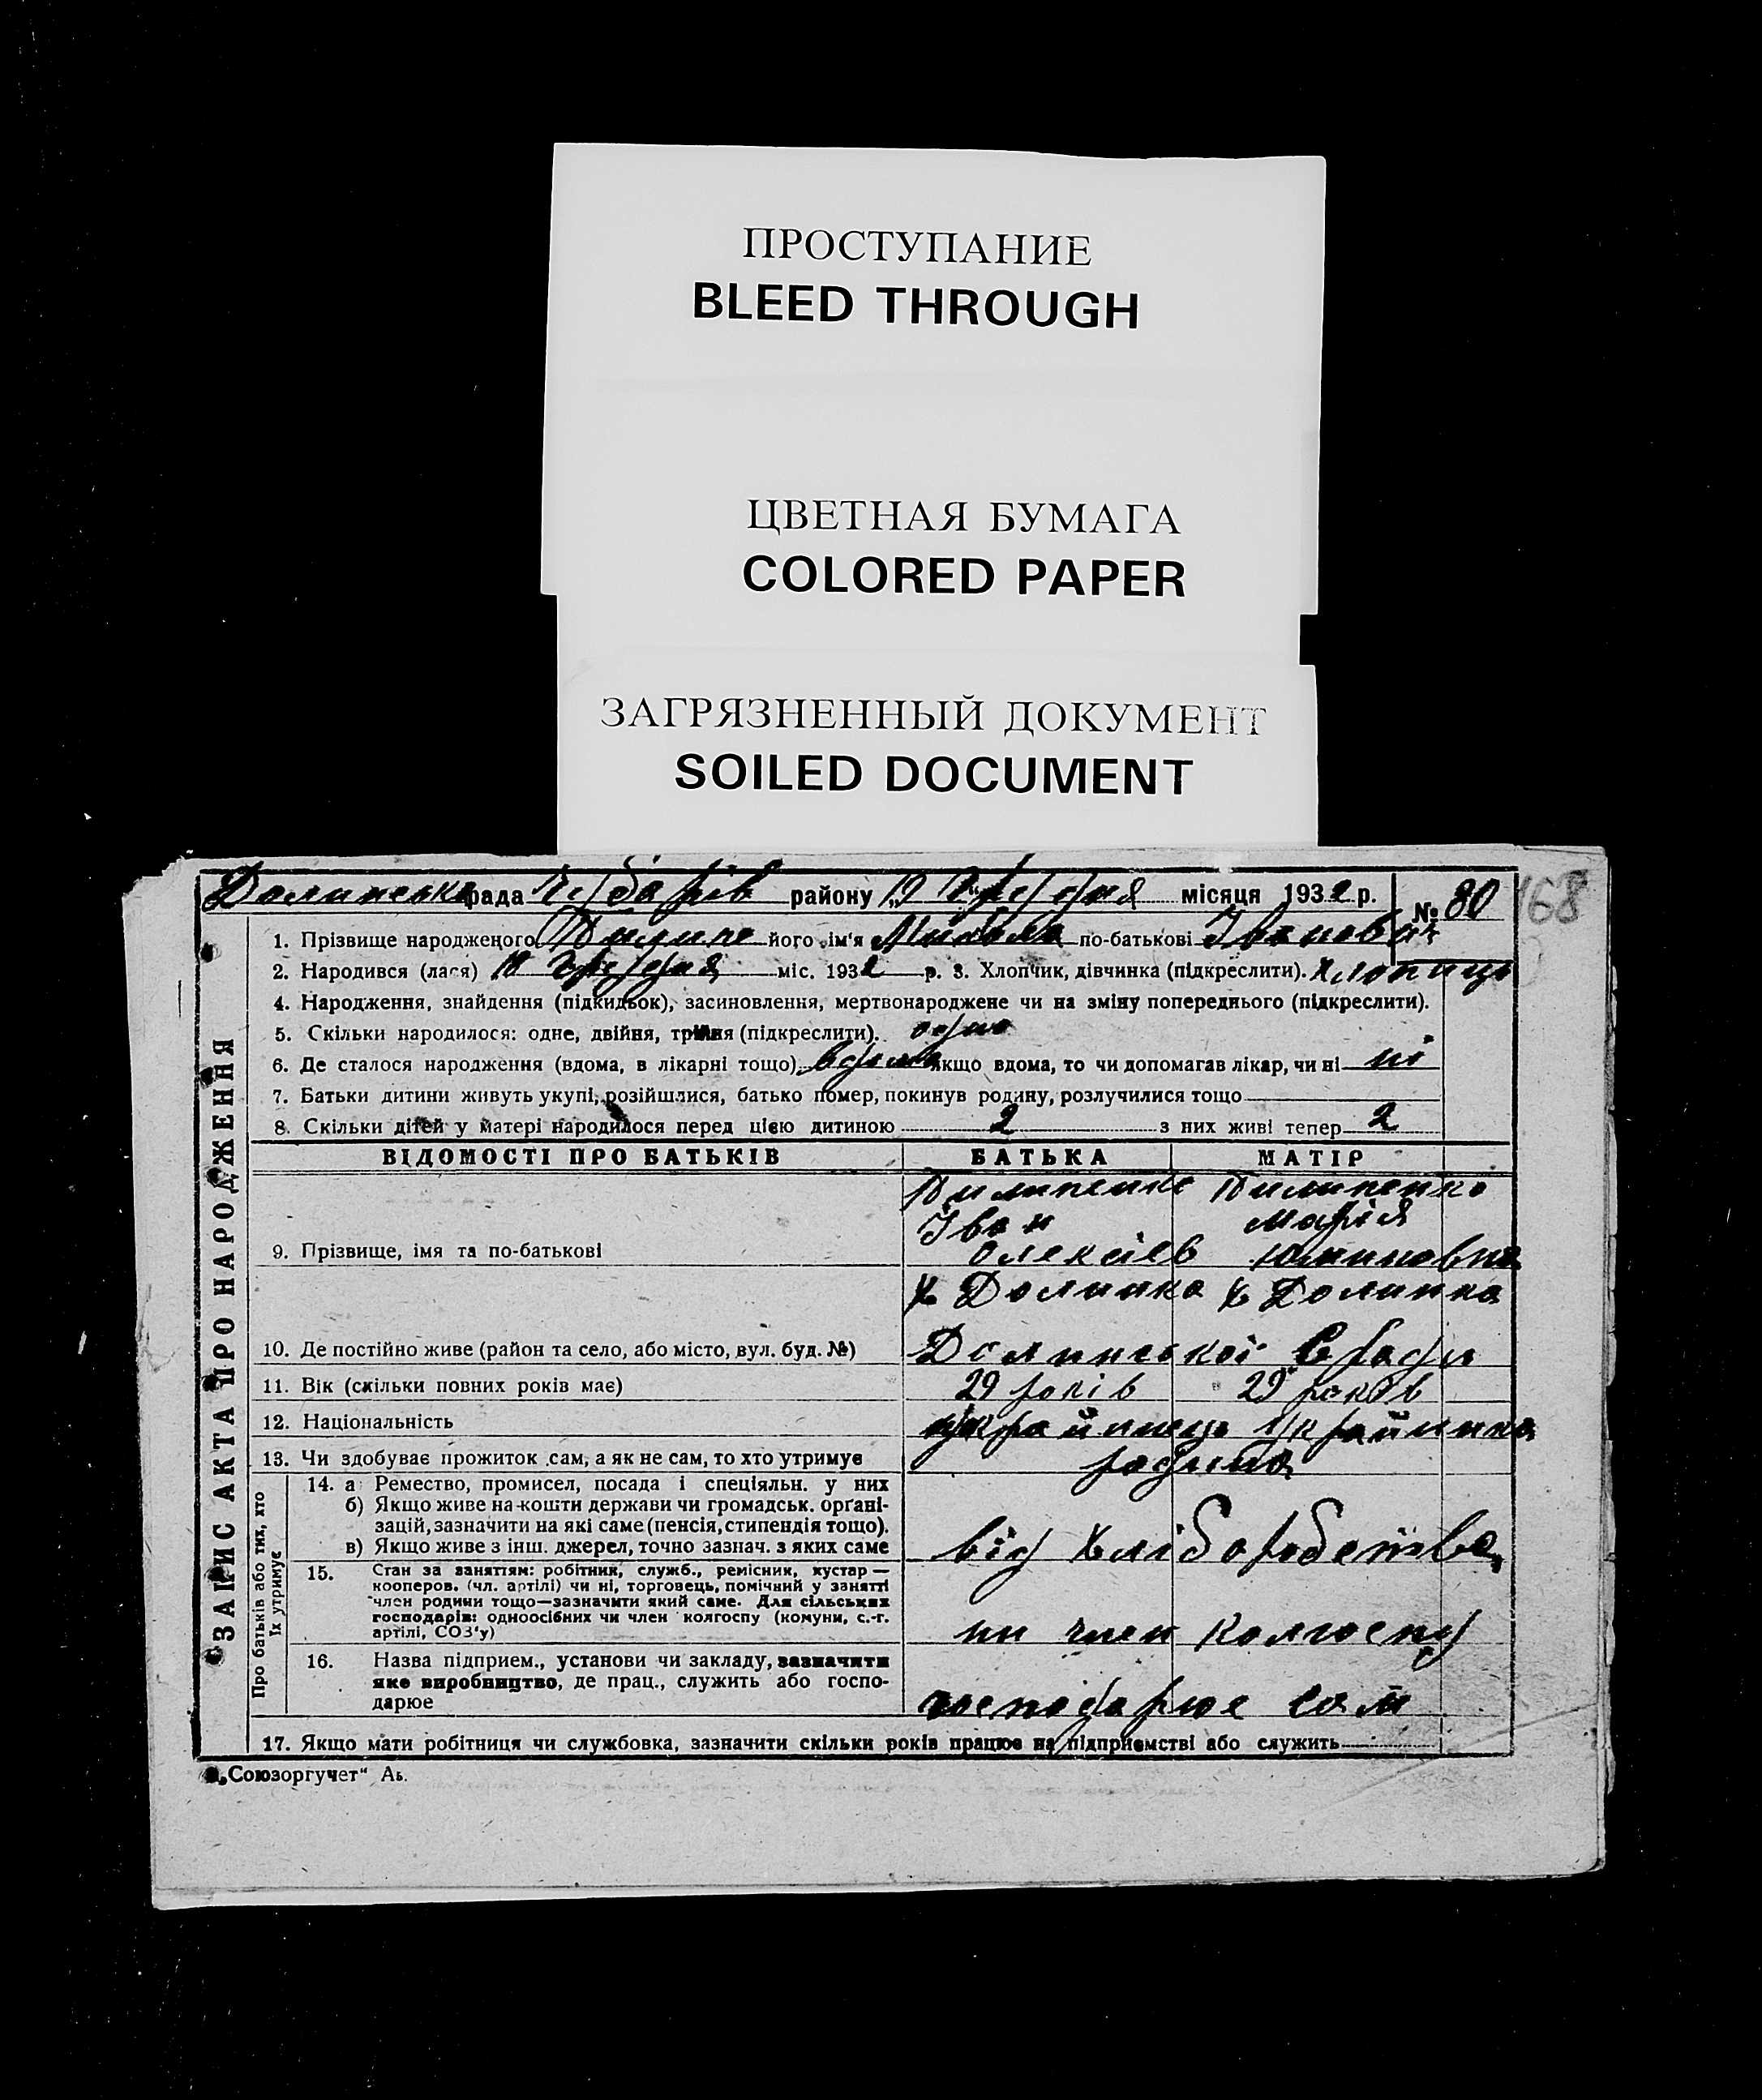 ПРОСТУПАНИЕ
BLEED THROUGH
ЦВЕТНАЯ БУМАГА
COLORED PAPER
ЗАГРЯЗНЕННЫЙ ДОКУМЕНТ
SOILED DOCUMENT
Долинська рада Чубарів району „19 грудня місяця 1932 р. № 80 168
1. Прізвище народженого його ім'я Микола по-батькові Іванович
2. Народився (лася) 10 грудня міс. 1932 р. 3. Хлопчик, дівчинка (підкреслити). хлопиць
4. Народження, знайдення (підкидьок), засиновлення, мертвонароджене чи на зміну попереднього (підкреслити).
5. Скільки народилося: одне, двійня, трійня (підкреслити). одно
6. Де сталося народження (вдома, в лікарні тощо) вдома якщо вдома, то чи допомагав лікар, чи ні ні
7. Батьки дитини живуть укупі, розійшлися, батько помер, покинув родину, розлучилися тощо
8. Скільки дітей у матері народилося перед цією дитиною 2 з них живі тепер 2
ЗАПИС АКТА ПРО НАРОДЖЕННЯ
ВІДОМОСТІ ПРО БАТЬКІВ БАТЬКА МАТІР
Пилипенко Пилипенко
Іван Марія
9. Прізвище, імя та по-батькові Олексієв
х Долинка х Долинка
10. Де постійно живе (район та село, або місто, вул. буд. №) Долинської с ради
11. Вік (скільки повних років має) 29 років 29 років
12. Національність українець українка
13. Чи здобуває прожиток сам, а як не сам, то хто утримує родина
Про батьків або тих, хто їх утримує
14. а Ремество, промисел, посада і спеціяльн. у них
б) Якщо живе на кошти держави чи громадськ. орґані-
зацій, зазначити на які саме (пенсія, стипендія тощо).
в) Якщо живе з інш. джерел, точно зазнач. з яких саме від хліборобства
15. Стан за заняттям: робітник, служб., ремісник, кустар —
кооперов. (чл. артілі) чи ні, торговець, помічний у занятті
член родини тощо—зазначити який саме. Для сільських
господарів: одноосібних чи член колгоспу (комуни, с.-г.
артілі, СОЗ'у) ни член колгоспу
16. Назва підприєм., установи чи закладу, зазначити
яке виробництво, де прац., служить або госпо-
дарює господарює сам
17. Якщо мати робітниця чи службовка, зазначити скільки років працює на підприємстві або служить
„Союзоргучет" Аь.